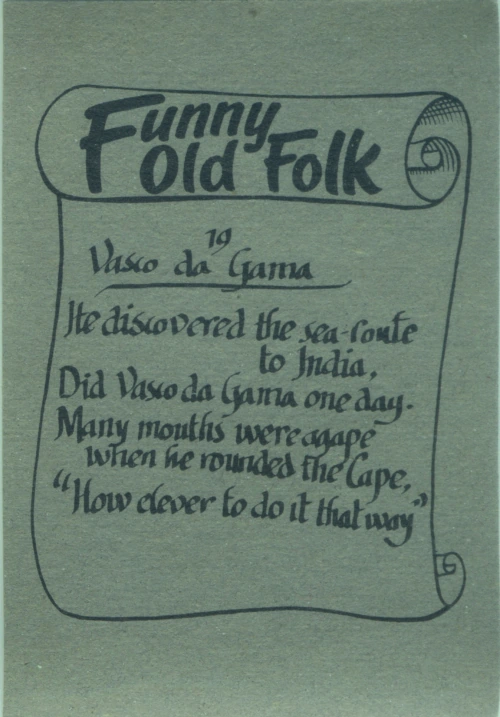 Funny
Old Folk
19
Vasco da Gama
He discovered the sea-route
to India,
Did Vasco da Gama one day.
Many mouths were agape
when he rounded the Cape,
"How clever to do it that way"